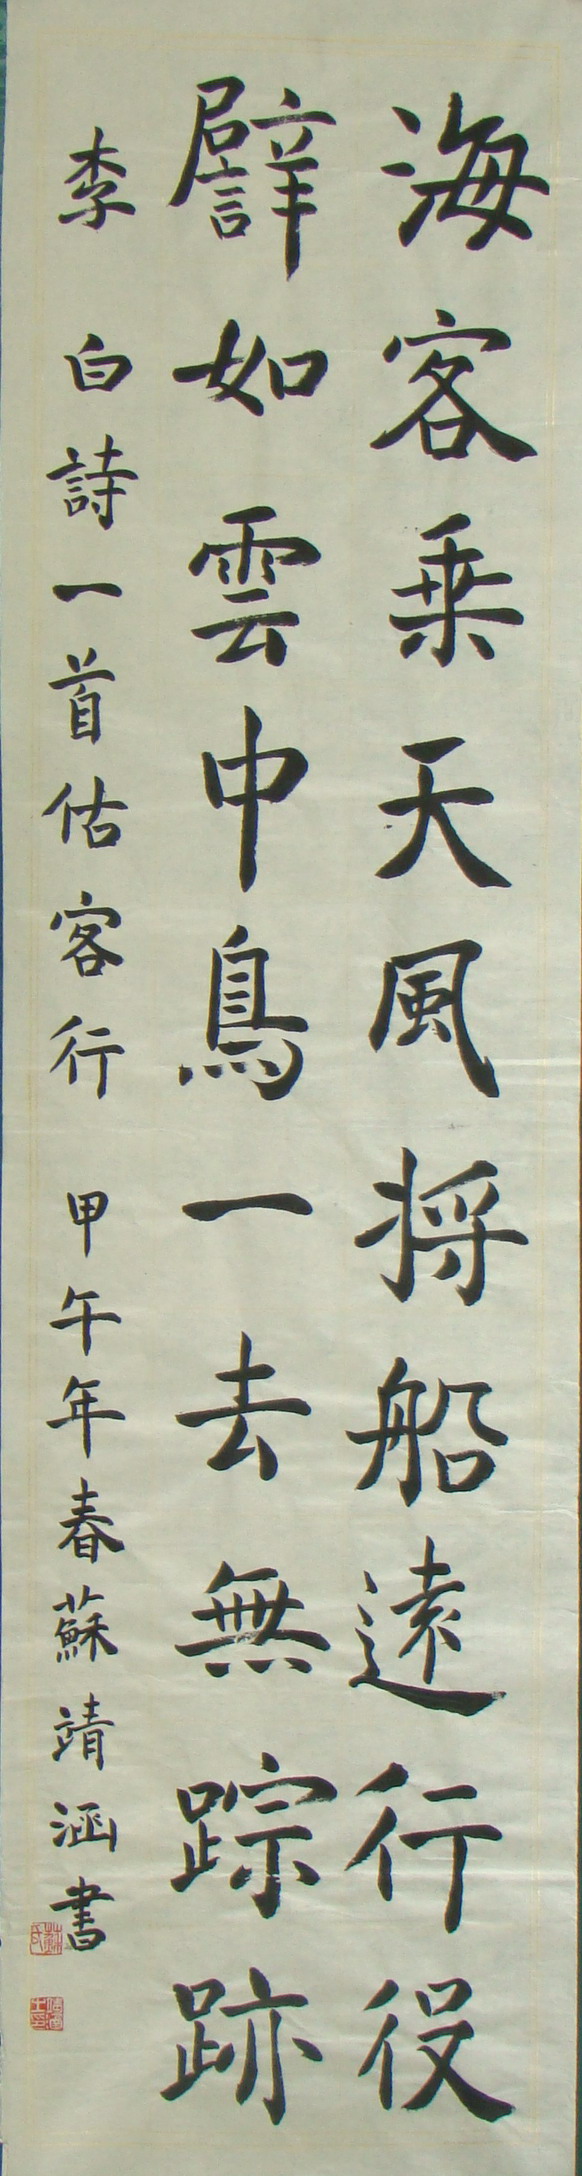 海客乘天風将船遠行役
譬如雲中鳥一去無踪跡
李白詩一首估客行 甲午年春蘇靖涵書